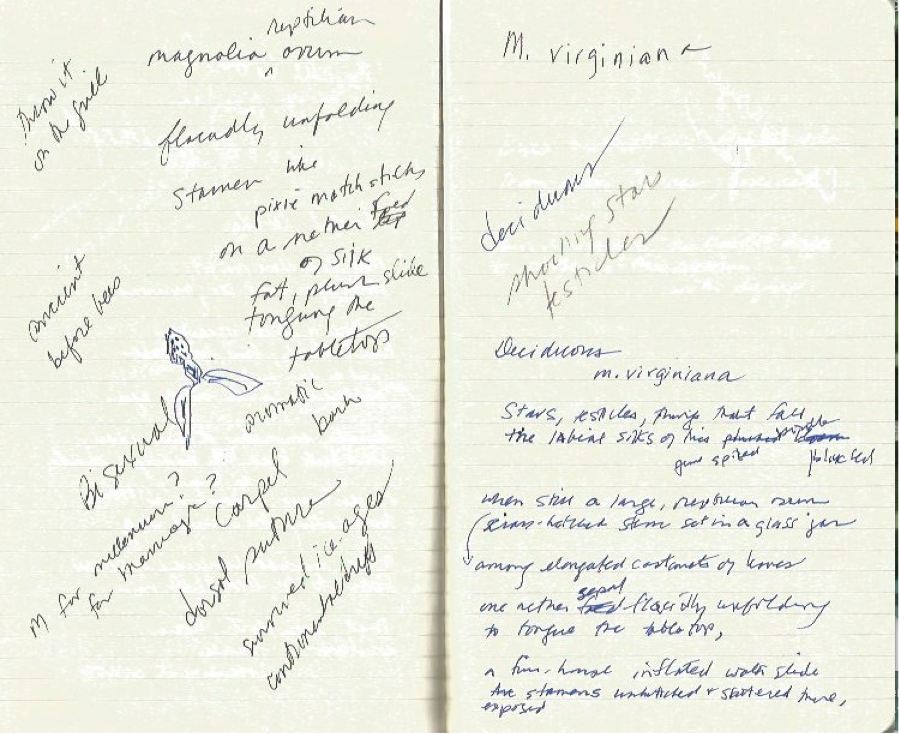 reptilian
magnolia ^ ovum
throw it
on the grill
flacidly unfolding
Stamen like
pixie match sticks
on a nether
of silk
fat, plush slide
tonguing the
tabletops
ancient
before bees
aromatic
bark
Bisexual
M for millennium?
for marriage?
Carpel
dorsal suture
survived ice-ages
continental drift
M. virginiana
deciduous
shooting stars
testicles
Deciduous
m. virginiana
Stars, testicles, things that fall
the labial silks of this purple
plucked
when still a large, reptilian ovum
stem set in a glass jar
among elongated castanets of leaves
sepal
one nether flacidly unfolding
to tongue the tabletop,
a fun-house inflated walk slide
the stamens unhitched + scattered there,
exposed